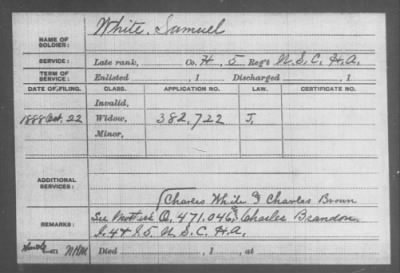 NAME OF SOLDIER: White, Samuel
SERVICE: Late rank, Co. H, 5 Reg't U.S.C.H.A.
TERM OF SERVICE: Enlisted , 1 Discharged , 1
DATE OF FILING. CLASS. APPLICATION NO. LAW. CERTIFICATE NO.
Invalid,
1888 Oct. 22 Widow, 382,722 J.
Minor,
ADDITIONAL SERVICES:
Charles White & Charles Brown
REMARKS: See Mother's O, 471.046, Charles Brandon
I. 4 & I. 5 U.S.C.H.A.
Died , 1 , at